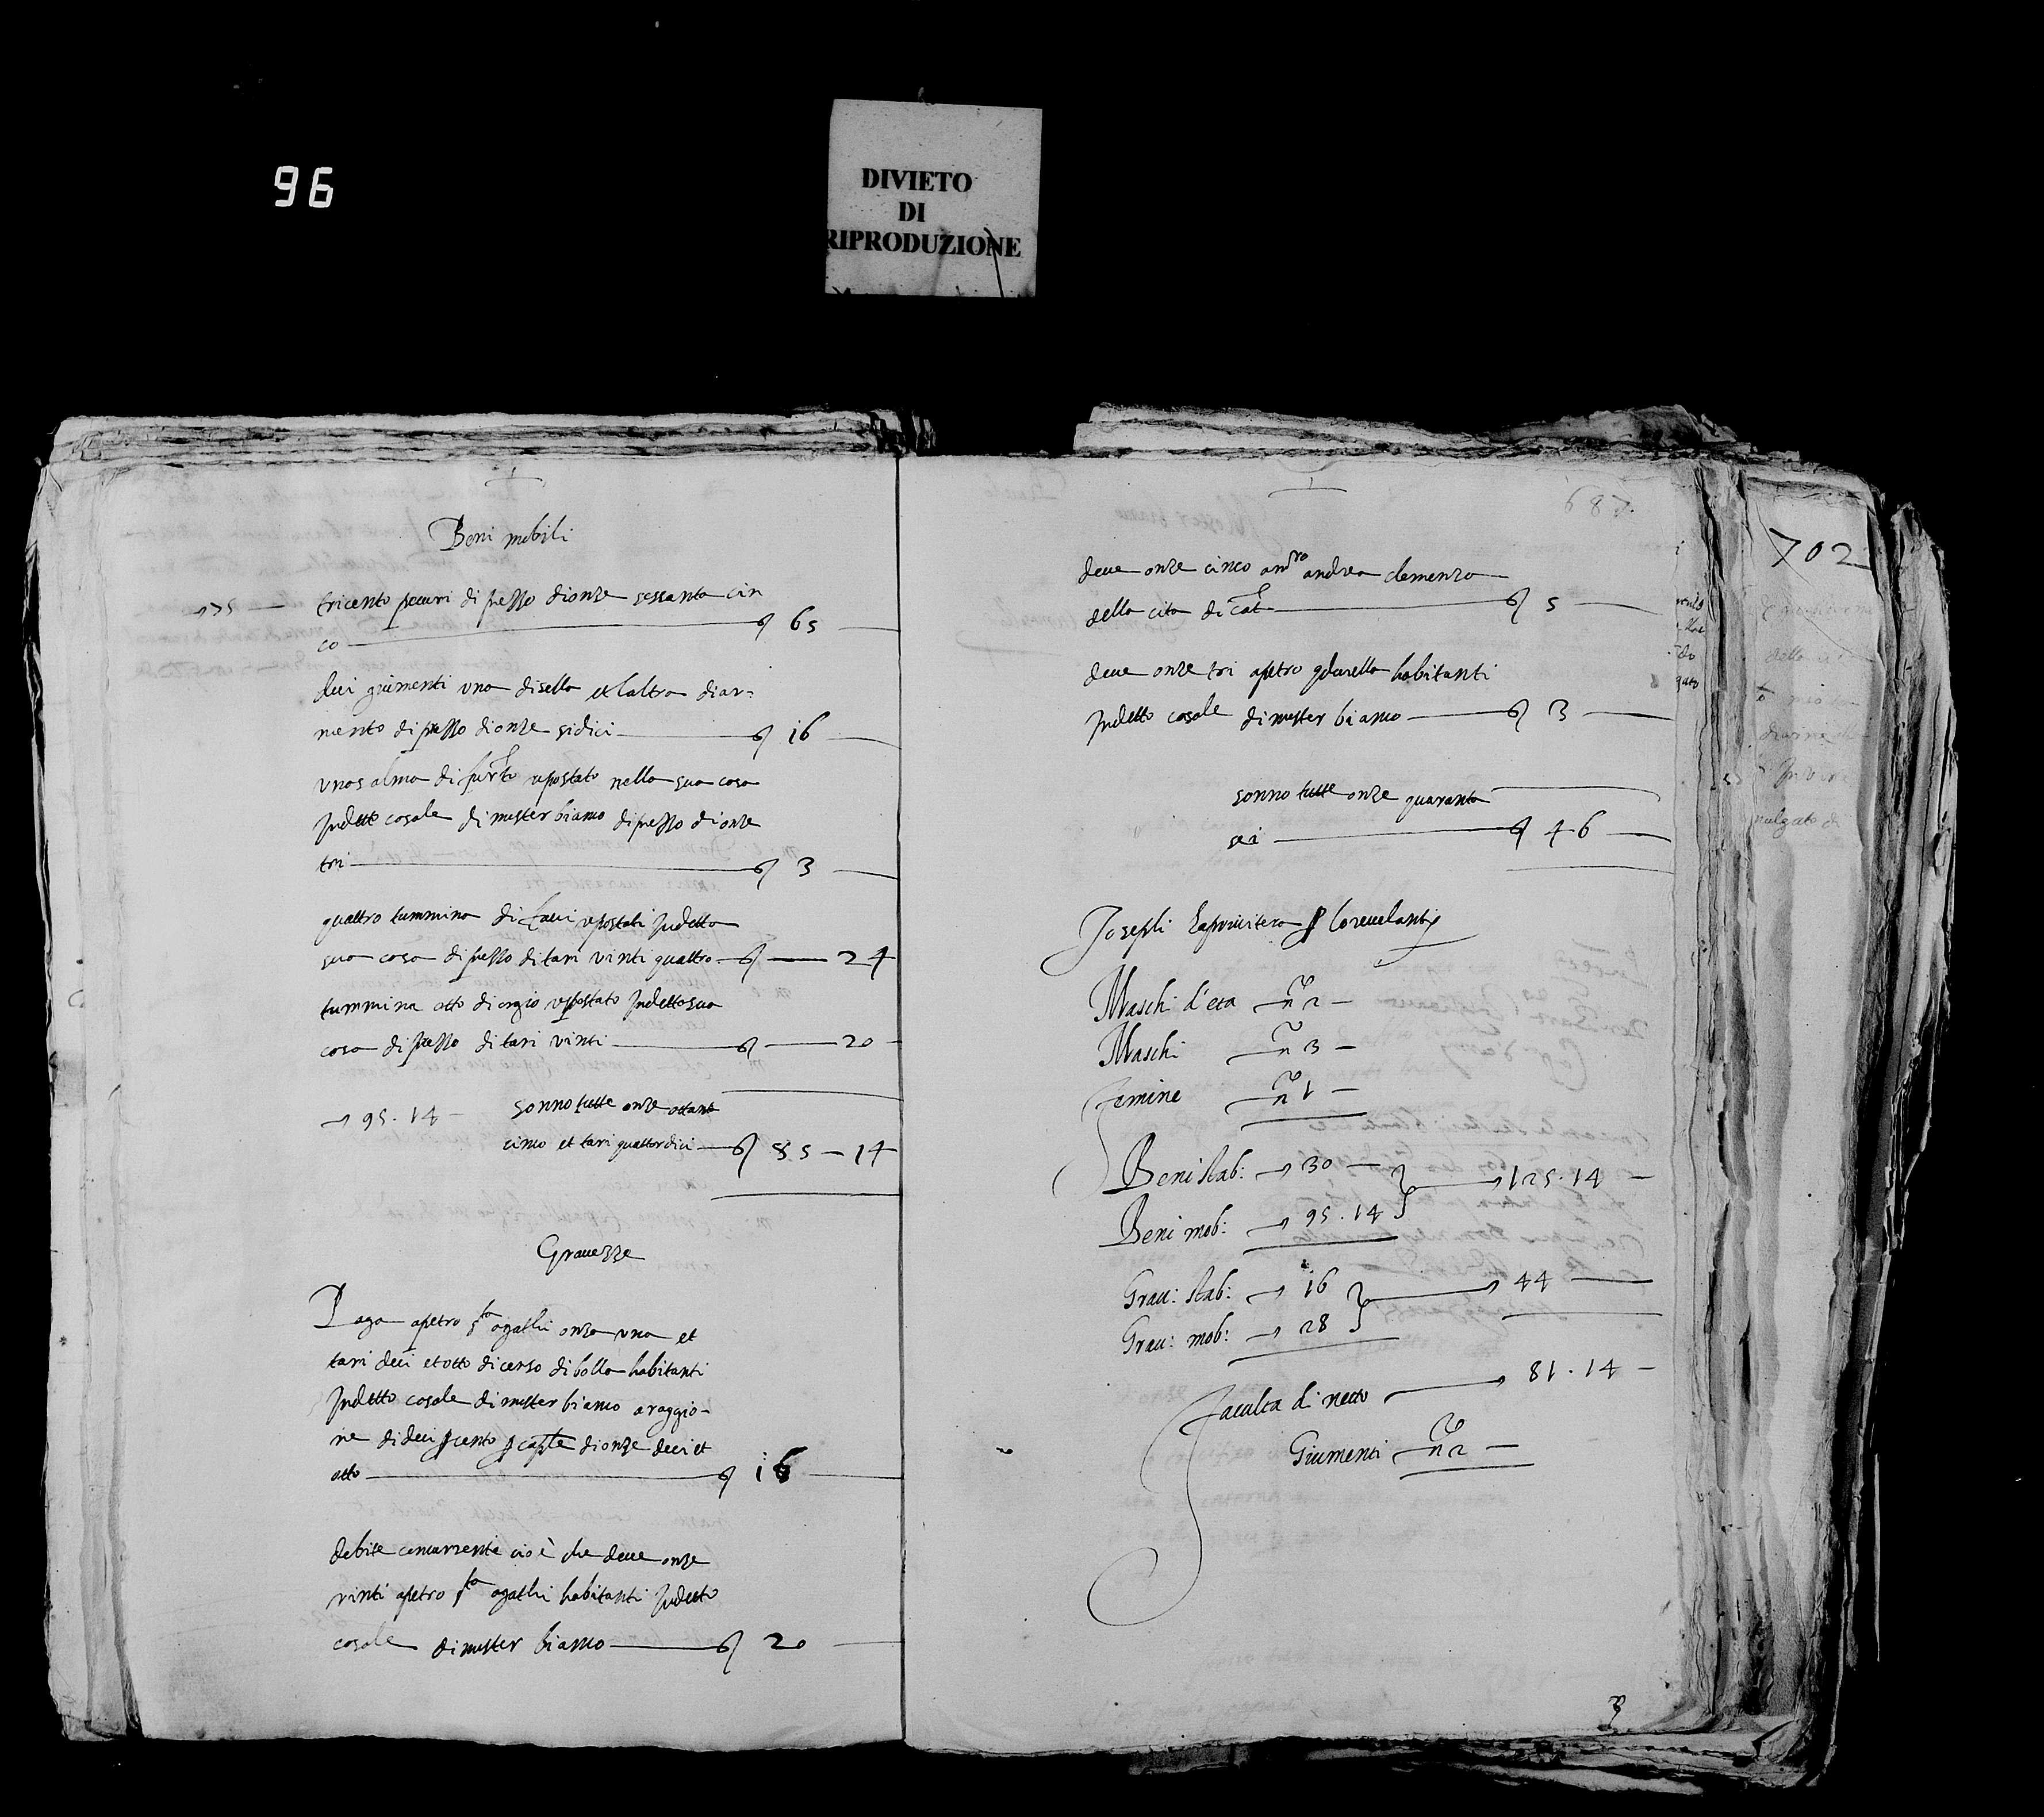 96
DIVIETO
DI
RIPRODUZIONE
Beni mobili
→ 75 — tricento pecuri di prezzo di onze sessanta cin
co — 65 —
deci giumenti una di sella et laltra di ar=
mento di prezzo di onze sidici — 16 —
una salma di furto repostato nella sua casa
in detto casale di mister bianco di prezzo di onze
tri — 3 —
quattro tummina di favi repostati in detta
sua casa di prezzo di tari vinti quattro — 24
tummina otto di orgio repostato in detta sua
casa di prezzo di tari vinti — 20 —
→ 95.14 — sonno tutte onze ottanta
cinco et tari quattordici — 85 — 14
Gravezze
Paga a petro sta agathi onza una et
tari deci et otto di censo di bolla habitanti
in detto casale di mister bianco a raggio-
ne di deci per cento per caple di onze deci et
otto — 16 —
debite concurrente cio è che deve onze
vinti a petro sta agathi habitanti in detto
casale di mister bianco — 20 —
687.
702
deve onze cinco andrea clemenza
della cita di cat — 5 —
deve onze tri a petro habitanti
in detto casale di mister bianco — 3 —
sonno tutte onze quaranta
sei — 46 —
Joseph Laprivitera
Maschi d'eta — no 2 —
Maschi — no 3 —
Femine — no 1 —
Beni stab: → 30 — → 125.14 —
Beni mob: → 95.14
Grav: stab: → 16 → 44 —
Grav: mob: → 28
Faculta di netto → 81.14 —
Giumenti — no 2 —